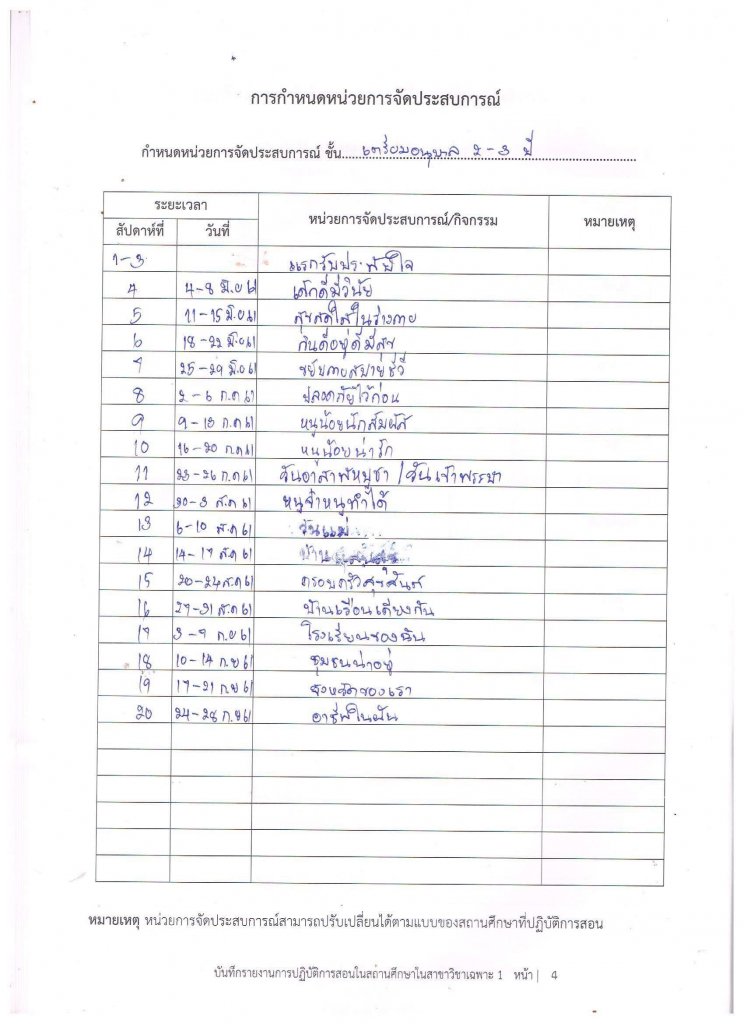 การกำหนดหน่วยการจัดประสบการณ์
กำหนดหน่วยการจัดประสบการณ์ ชั้น เตรียมอนุบาล 2-3 ปี
ระยะเวลา หน่วยการจัดประสบการณ์/กิจกรรม หมายเหตุ
สัปดาห์ที่ วันที่
1-3 แรกรับประทับใจ
4 4-8 มิ.ย 61 เด็กดีมีวินัย
5 11-15 มิ.ย 61 สุขสดใสในร่างกาย
6 18-22 มิ.ย 61 กินดีอยู่ดีมีสุข
7 25-29 มิ.ย 61 ขยับกายสบายชีวี
8 2-6 ก.ค 61 ปลอดภัยไว้ก่อน
9 9-13 ก.ค 61 หนูน้อยนักสัมผัส
10 16-20 ก.ค 61 หนูน้อยน่ารัก
11 23-26 ก.ค 61 วันอาสาฬหบูชา / วันเข้าพรรษา
12 30-3 ส.ค 61 หนูจ๋าหนูทำได้
13 6-10 ส.ค 61 วันแม่
14 14-17 ส.ค 61 บ้าน
15 20-24 ส.ค 61 ครอบครัวสุขสันต์
16 27-31 ส.ค 61 บ้านเรือนเคียงกัน
17 3-7 ก.ย 61 โรงเรียนของฉัน
18 10-14 ก.ย 61 ชุมชนน่าอยู่
19 17-21 ก.ย 61 จังหวัดของเรา
20 24-28 ก.ย 61 อาชีพในฝัน
หมายเหตุ หน่วยการจัดประสบการณ์สามารถปรับเปลี่ยนได้ตามแบบของสถานศึกษาที่ปฏิบัติการสอน
บันทึกรายงานการปฏิบัติการสอนในสถานศึกษาในสาขาวิชาเฉพาะ 1 หน้า | 4